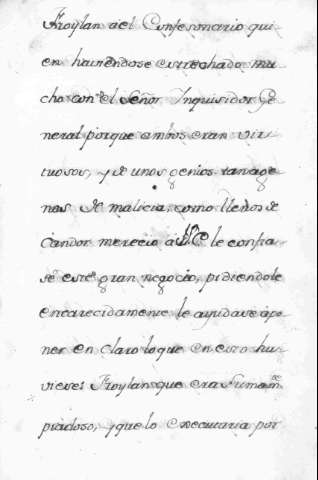 Froylan del Confesonario qui-
en haviendose estrechado mu-
cho con el Señor Inquisidor Ge-
neral porque ambos eran vir-
tuosos, y de unos genios tan age-
nos de malicia, como llenos de
Candor merecio a le confia-
se este gran negocio, pidiendole
encarecidamente le ayudase a po-
ner en claro lo que en esto hu-
viese, Froylan que era sumamte
piadoso, y que lo executaria por